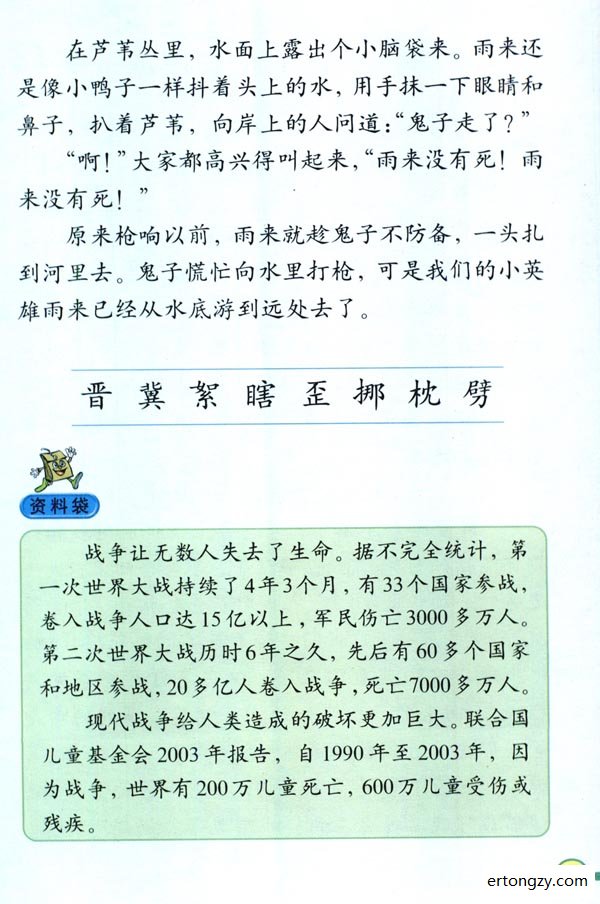 在芦苇丛里，水面上露出个小脑袋来。雨来还
是像小鸭子一样抖着头上的水，用手抹一下眼睛和
鼻子，扒着芦苇，向岸上的人问道：“鬼子走了？”
“啊！”大家都高兴得叫起来，“雨来没有死！雨
来没有死！”
原来枪响以前，雨来就趁鬼子不防备，一头扎
到河里去。鬼子慌忙向水里打枪，可是我们的小英
雄雨来已经从水底游到远处去了。
晋 冀 絮 瞎 歪 挪 枕 劈
资料袋
战争让无数人失去了生命。据不完全统计，第
一次世界大战持续了4年3个月，有33个国家参战，
卷入战争人口达15亿以上，军民伤亡3000多万人。
第二次世界大战历时6年之久，先后有60多个国家
和地区参战，20多亿人卷入战争，死亡7000多万人。
现代战争给人类造成的破坏更加巨大。联合国
儿童基金会2003年报告，自1990年至2003年，因
为战争，世界有200万儿童死亡，600万儿童受伤或
残疾。
ertongzy.com